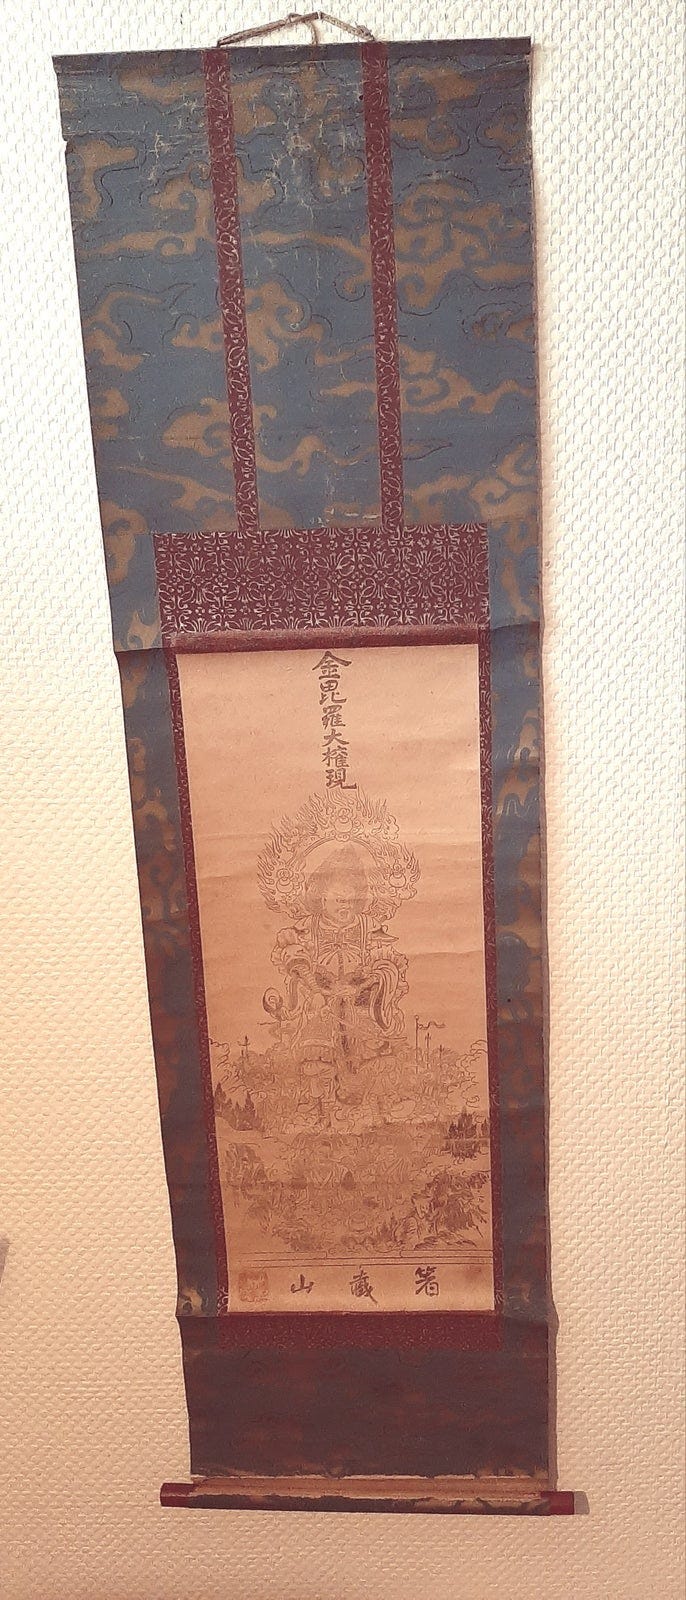 金毘羅大権現
箸蔵山